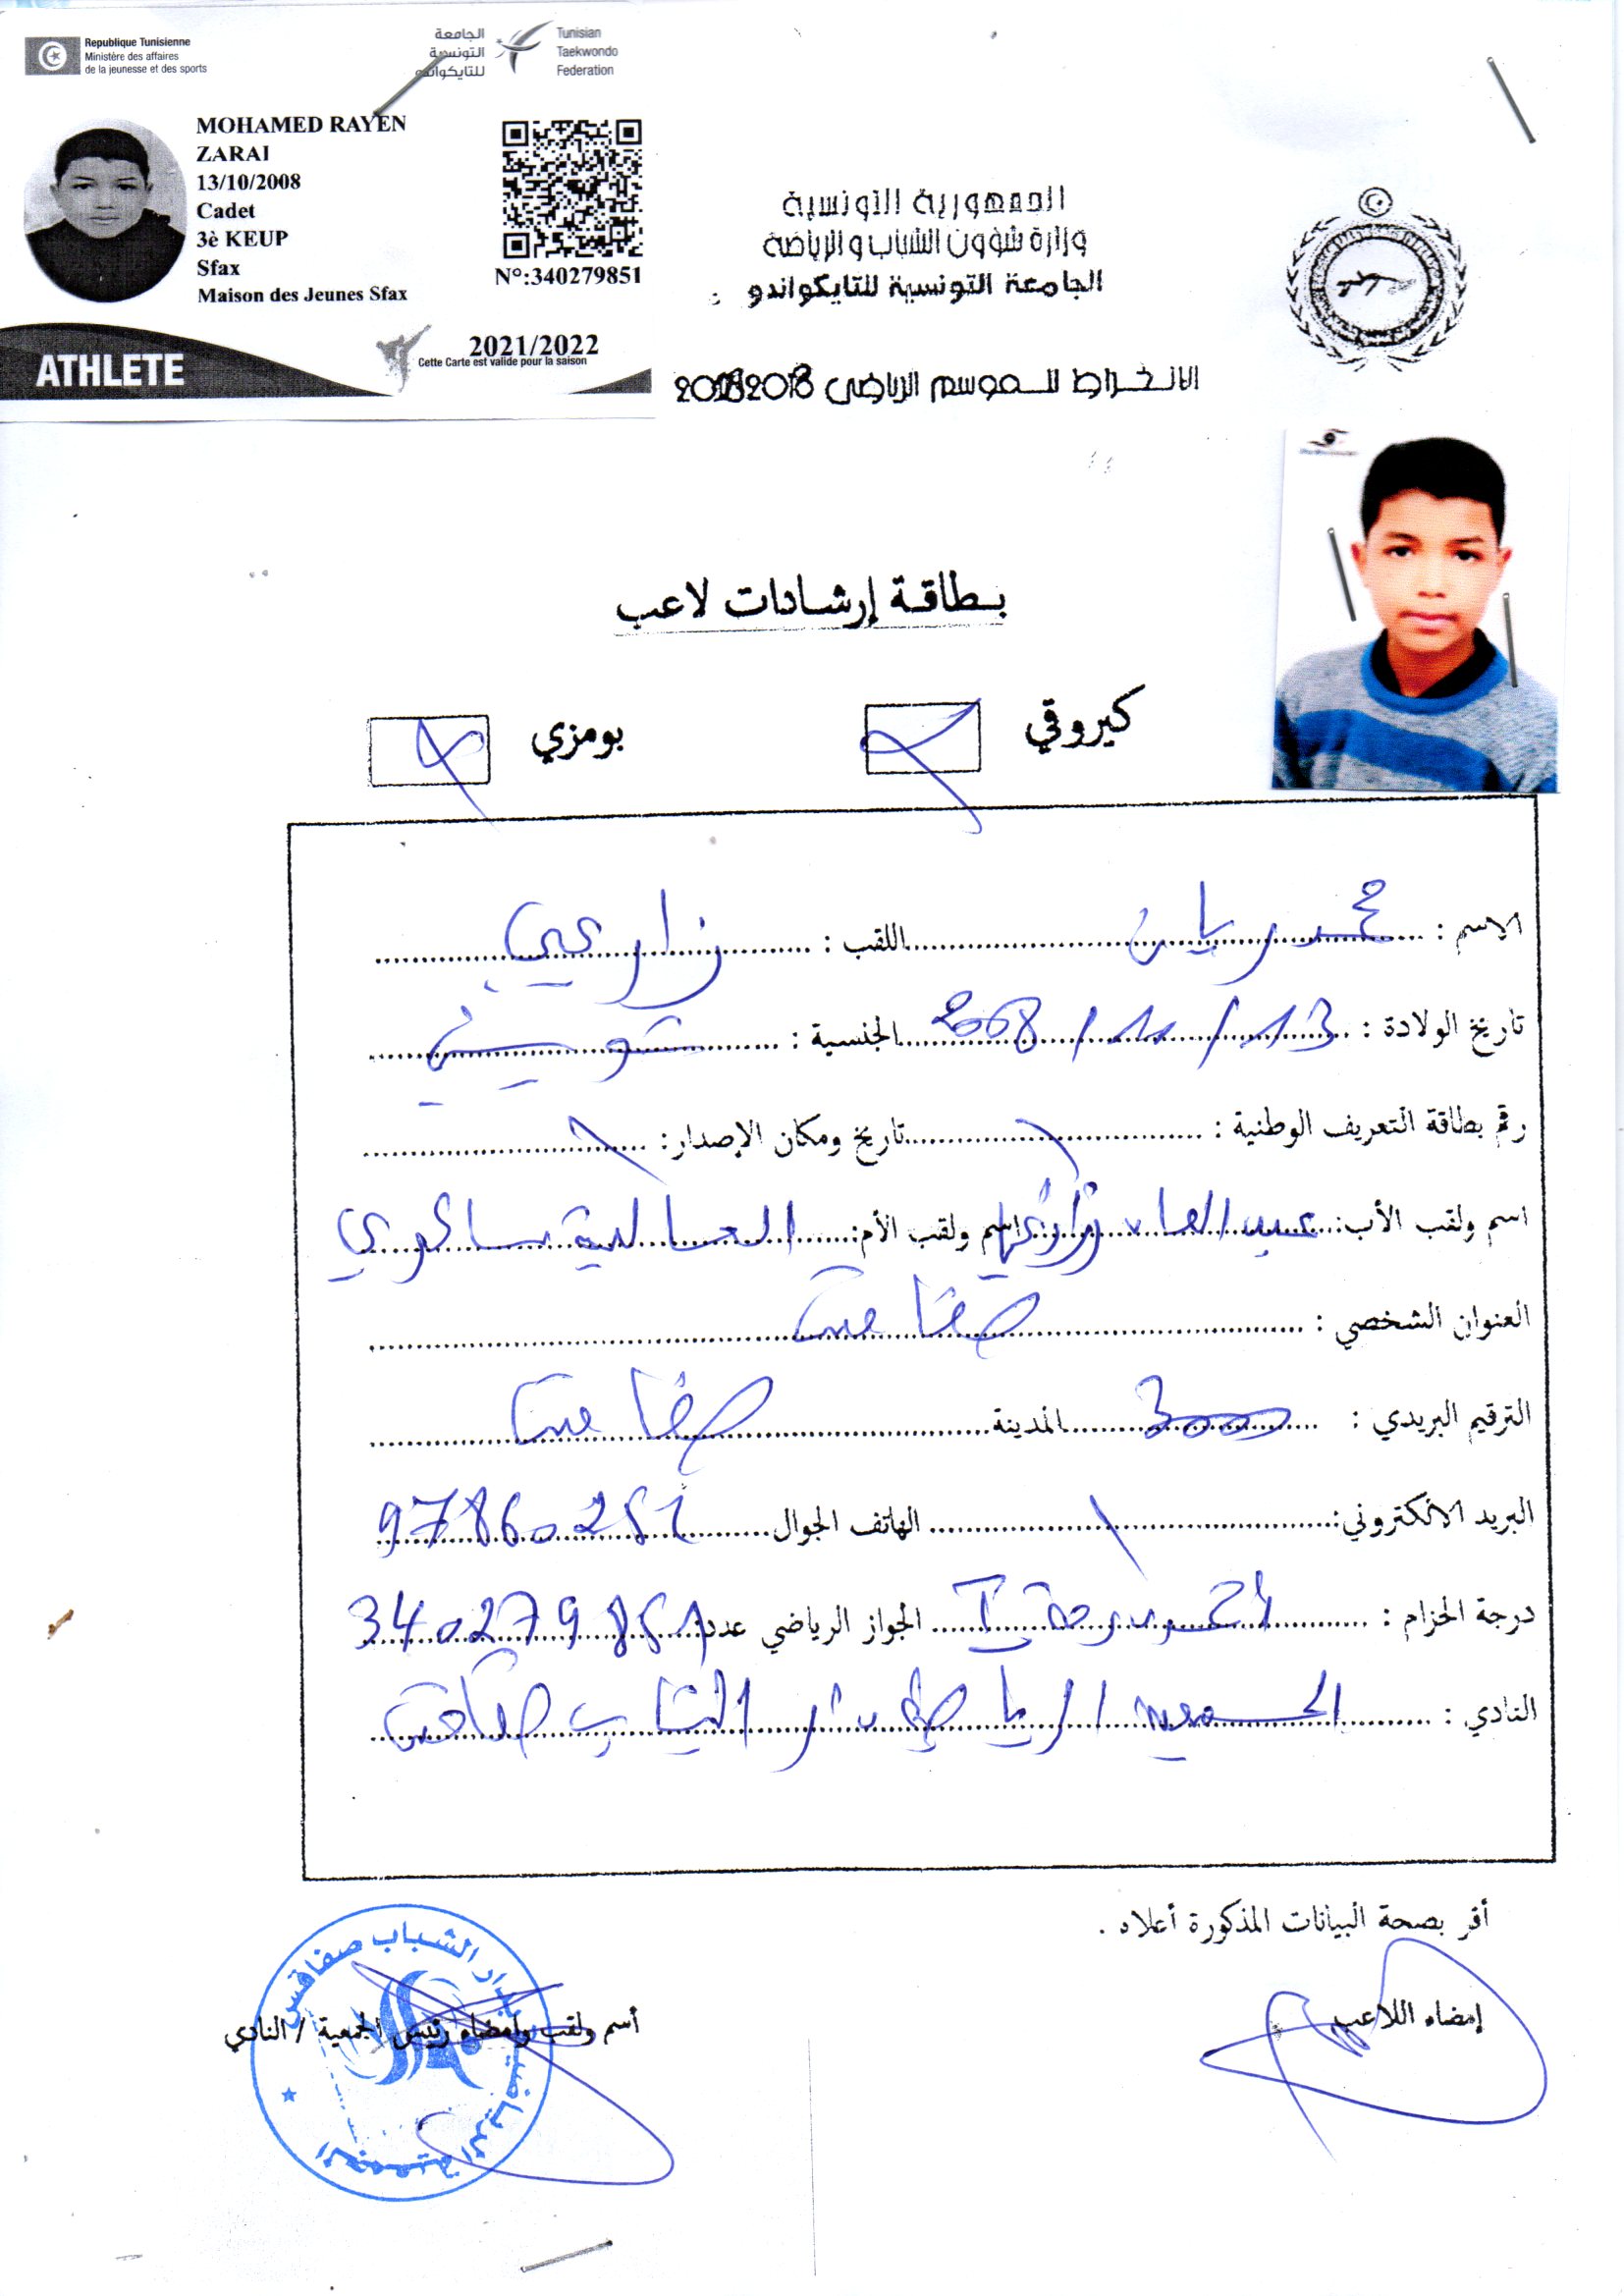 Republique Tunisienne
Ministère des affaires
de la jeunesse et des sports
الجامعة
التونسية
للتايكواندو
Tunisian
Taekwondo
Federation
MOHAMED RAYEN
ZARAI
13/10/2008
Cadet
3è KEUP
Sfax
Maison des Jeunes Sfax
N°:340279851
2021/2022
Cette Carte est valide pour la saison
ATHLETE
الجمهورية التونسية
وزارة شؤون الشباب والرياضة
الجامعة التونسية للتايكواندو
الانخراط للموسم الرياضي
بطاقة إرشادات لاعب
كيروقي
بومزي
الاسم : محمد ريان اللقب : زارعي
تاريخ الولادة : 13 / 10 / 2008 الجنسية : تونسي
رقم بطاقة التعريف الوطنية : \ تاريخ ومكان الإصدار: \
اسم ولقب الأب: اسم ولقب الأم:
العنوان الشخصي : صفاقس
الترقيم البريدي : 3000 المدينة صفاقس
البريد الالكتروني: \ الهاتف الجوال 97860251
درجة الحزام : الجواز الرياضي عدد 340279851
النادي : الجمعية الرياضية بدار الشباب صفاقس
أقر بصحة البيانات المذكورة أعلاه .
إمضاء اللاعب
أسم ولقب وإمضاء رئيس الجمعية / النادي
الجمعية الرياضية بدار الشباب صفاقس